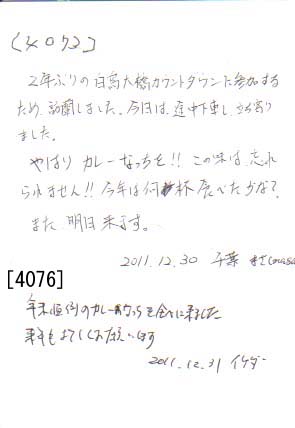 [4073]
2年ぶりの白鳥大橋カウントダウンに参加する
ため、訪蘭しました。今日は、途中下車し、立ち寄り
ました。
やはり カレーなっちを!! この味は忘れ
られません!! 今年は何杯食べたかな?
また 明日 来ます。
2011.12.30 千葉
[4076]
年末恒例のカレーなっちを食べに来ました
来年もよろしくお願いします
2011.12.31 イケダ